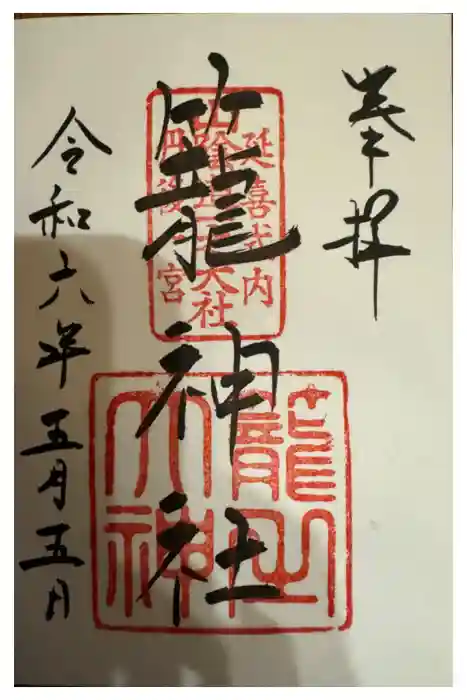 奉拝
延喜式内
山陰道一大社
丹後一宮
籠神社
籠之
大神
令和六年五月五日